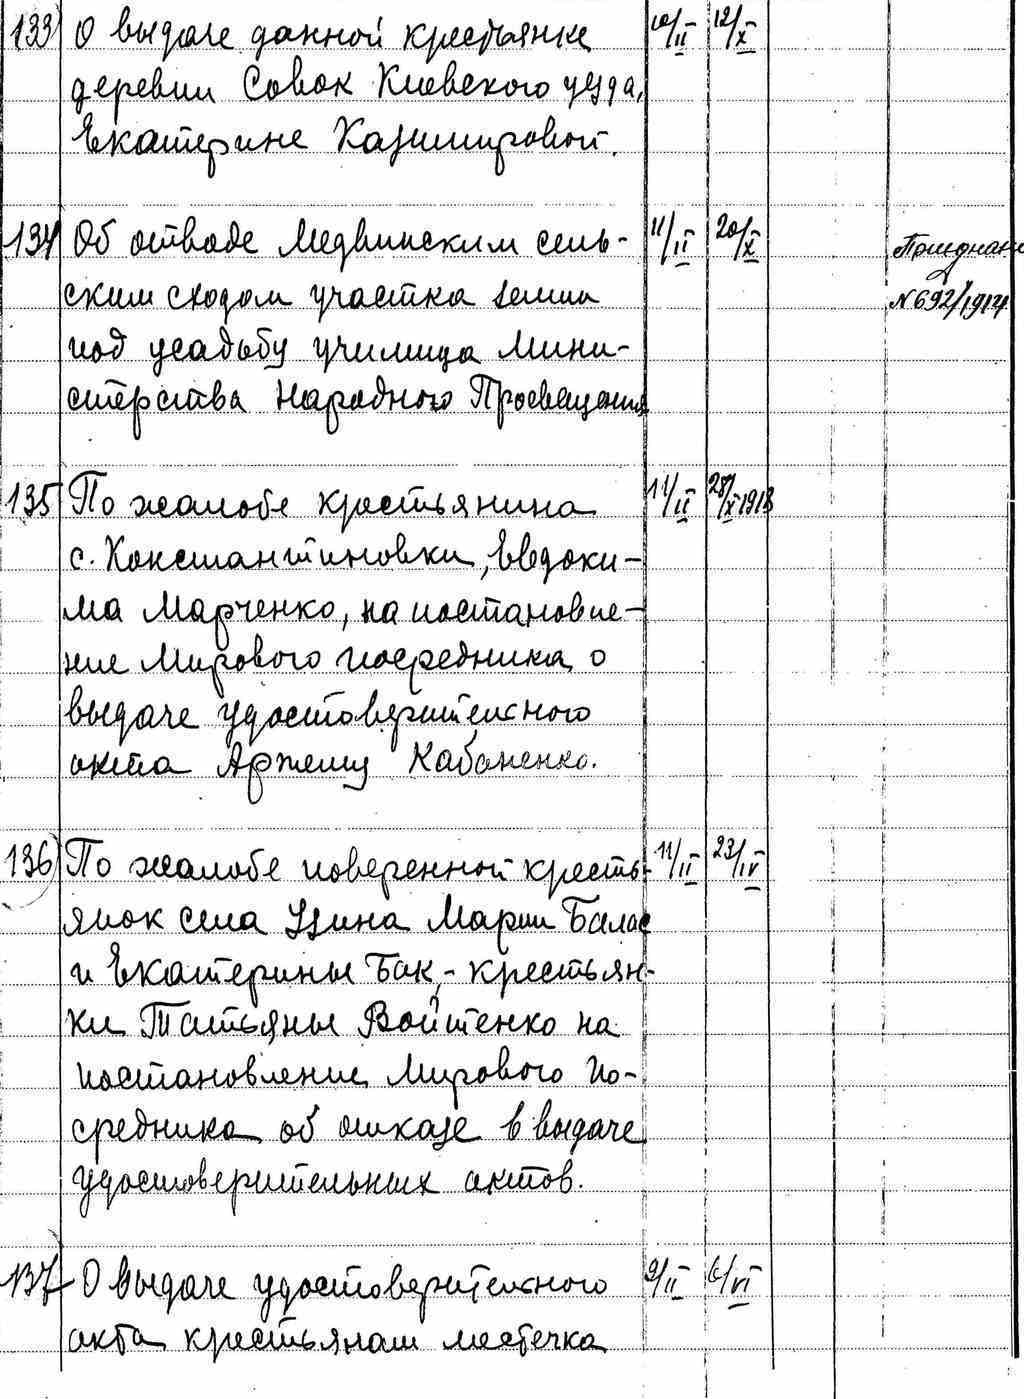 133) О выдаче данной крестьянке 10/II 12/X
деревни Совок Киевского уезда,
Екатерине Казимировой.
134 Об отводе Медвинским сель- 11/II 20/X Приєднан
ским сходом участка земли N692/1914
под усадьбу училища Мини-
стерства Народного Просвещения
135 По жалобе крестьянина 11/II 28/X1913
с. Константиновки, Евдоки-
ма Марченко, на постановле-
ние Мирового посредника о
выдаче удостоверительного
акта Артему Кабаненко.
136) По жалобе поверенной кресть- 11/II 23/IV
янок села Узина Марии Балас
и Екатерины Бак,- крестьян-
ки Татьяны Войтенко на
постановление Мирового По-
средника об отказе в выдаче
удостоверительных актов.
137 О выдаче удостоверительного 9/II 6/VI
акта крестьянам местечка